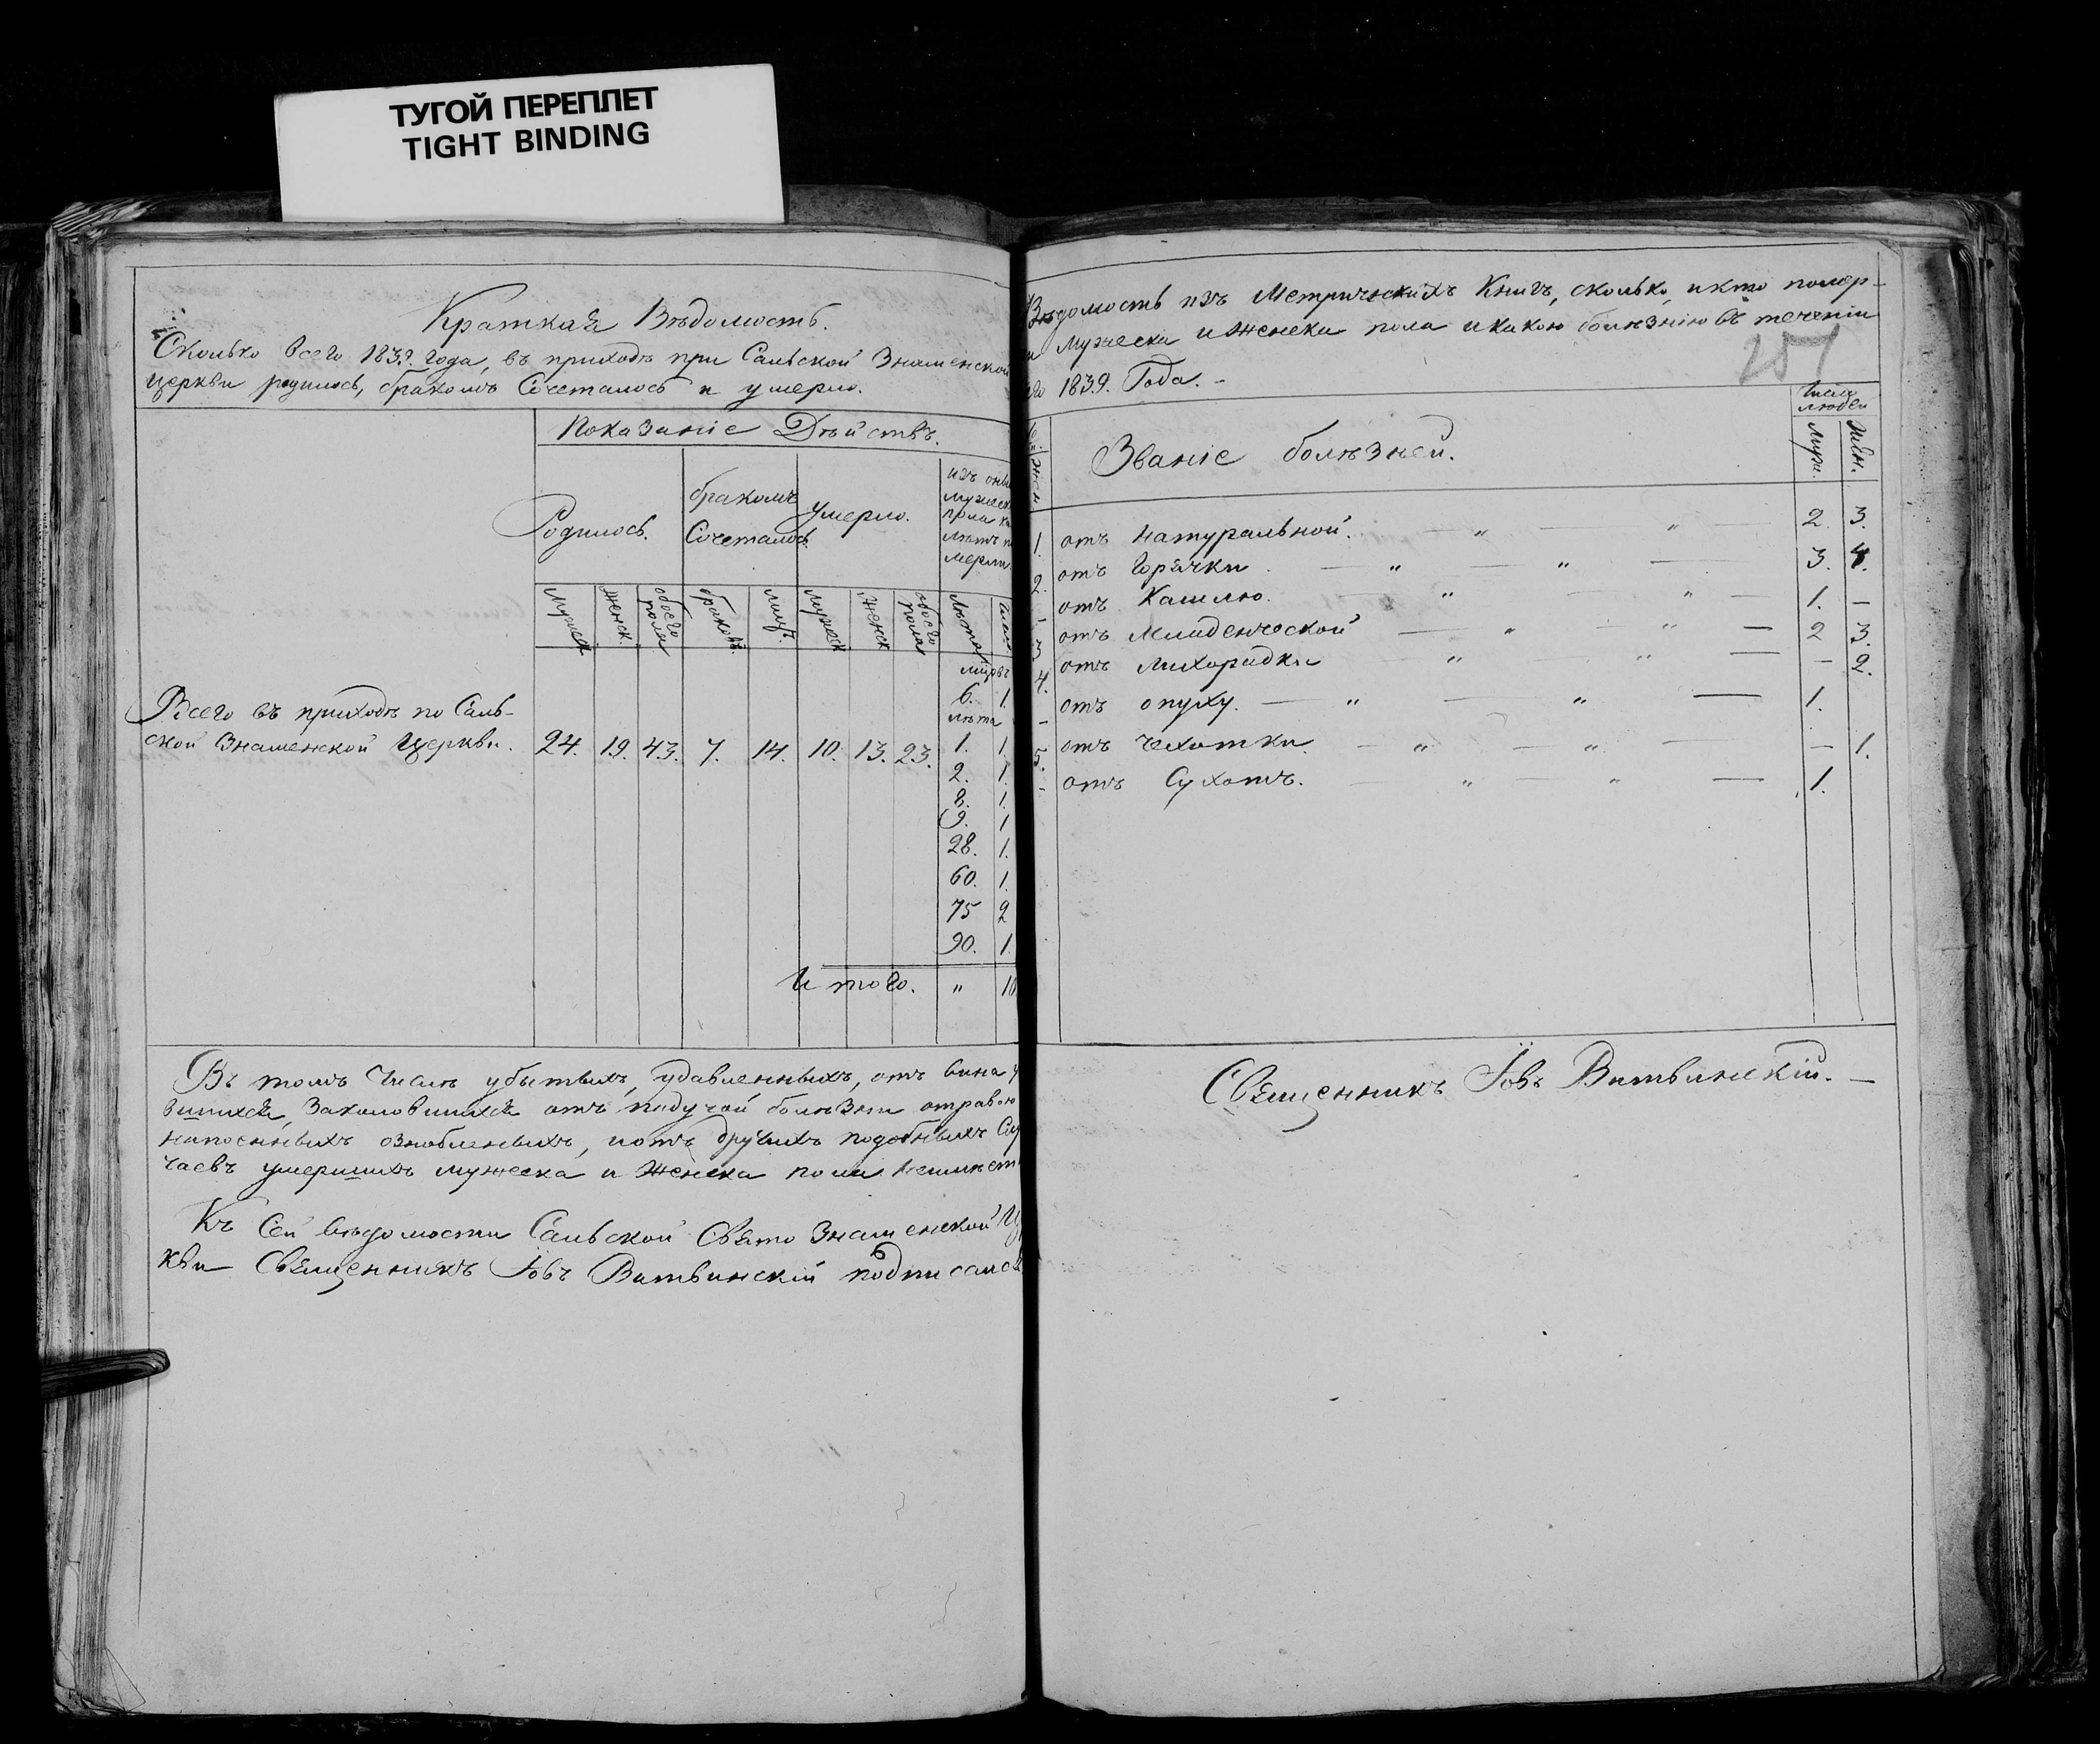 ТУГОЙ ПЕРЕПЛЕТ
TIGHT BINDING
Краткая Вѣдомость.
Сколько всего 1839. года, въ приходѣ при Сальской Знаменской
церкви родилось, бракомъ Сочеталось и умерло.
Показаніе Дѣйствъ.
Родилось.
бракомъ
Сочеталось.
умерло.
изъ оны
мужеск
пола
лѣтъ
мерли.
Мужеск
женск.
обоего
пола
браковъ.
лицъ.
мужеск
женск
обоего
пола
Лѣта
6. 1.
лѣта
Всего въ приходѣ по Саль-
ской Знаменской Церкви. 24. 19. 43. 7. 14. 10. 13. 23. 1. 1.
2. 1.
8. 1.
9. 1
28. 1.
60. 1.
75 2
90. 1.
Итого. " 10
Въ томъ Числѣ убытыхъ, удавленныхъ, отъ вина
вшихся, Заколовшихся отъ подучой болѣзни отравою
напоенныхъ ознобленыхъ, и отъ другихъ подобныхъ Слу
чаевъ умершихъ мужеска и женска пола
Къ Сей вѣдомости Сальской Свято Знаменской Ц
кви Священникъ Іовъ Витвинскій подписался
Вѣдомость изъ Метрическихъ Книгъ, сколько, и кто помер-
и мужеска и женска пола и какою болѣзнію въ теченіи
го 1839. Года. -
251
Число
людей
Званіе болѣзней.
Муж.
Жен.
1. отъ натуральной. — " — " 2. 3.
2. отъ Горячки. — " — " — 3. 4.
- отъ Кашлю. " — " — 1. —
3 отъ Младенческой — " — " — 2 3.
4. отъ лихорадки — " — " — — 2.
- отъ опуху. — " — " — 1.
5. отъ чехотки. — " — " — — 1.
- отъ Сухотъ. — " — " — 1.
Священникъ Іовъ Витвинскій. —